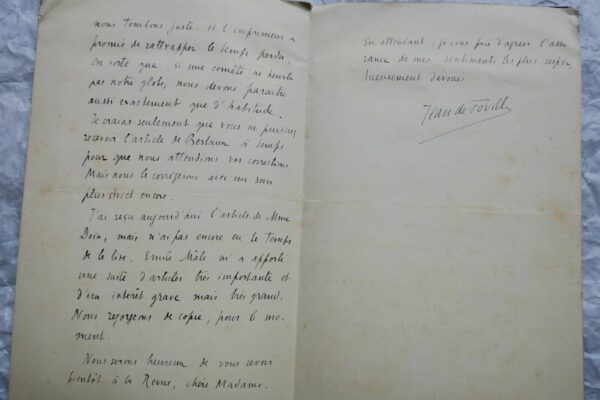 nous tombons juste, et l'imprimeur a
promis de rattrapper le temps perdu,
en sorte que, si une comète ne heurte
pas notre globe, nous devons paraître
aussi exactement que d'habitude.
Je crains seulement que vous ne puissiez
recevoir l'article de Bertaux à temps
pour que nous attendions vos corrections.
Mais nous le corrigerons avec un soin
plus strict encore.
J'ai reçu aujourd'hui l'article de Mme
mais n'ai pas encore eu le temps
de le lire. Emile Mâle m'a apporté
une suite d'articles très importante et
d'un intérêt grave mais très grand.
Nous regorgeons de copie, pour le mo-
ment.
Nous serons heureux de vous revoir
bientôt à la Revue, chère Madame.
En attendant, je vous prie d'agréer l'assu-
rance de mes sentiments les plus respec-
tueusement dévoués
Jean de Foville